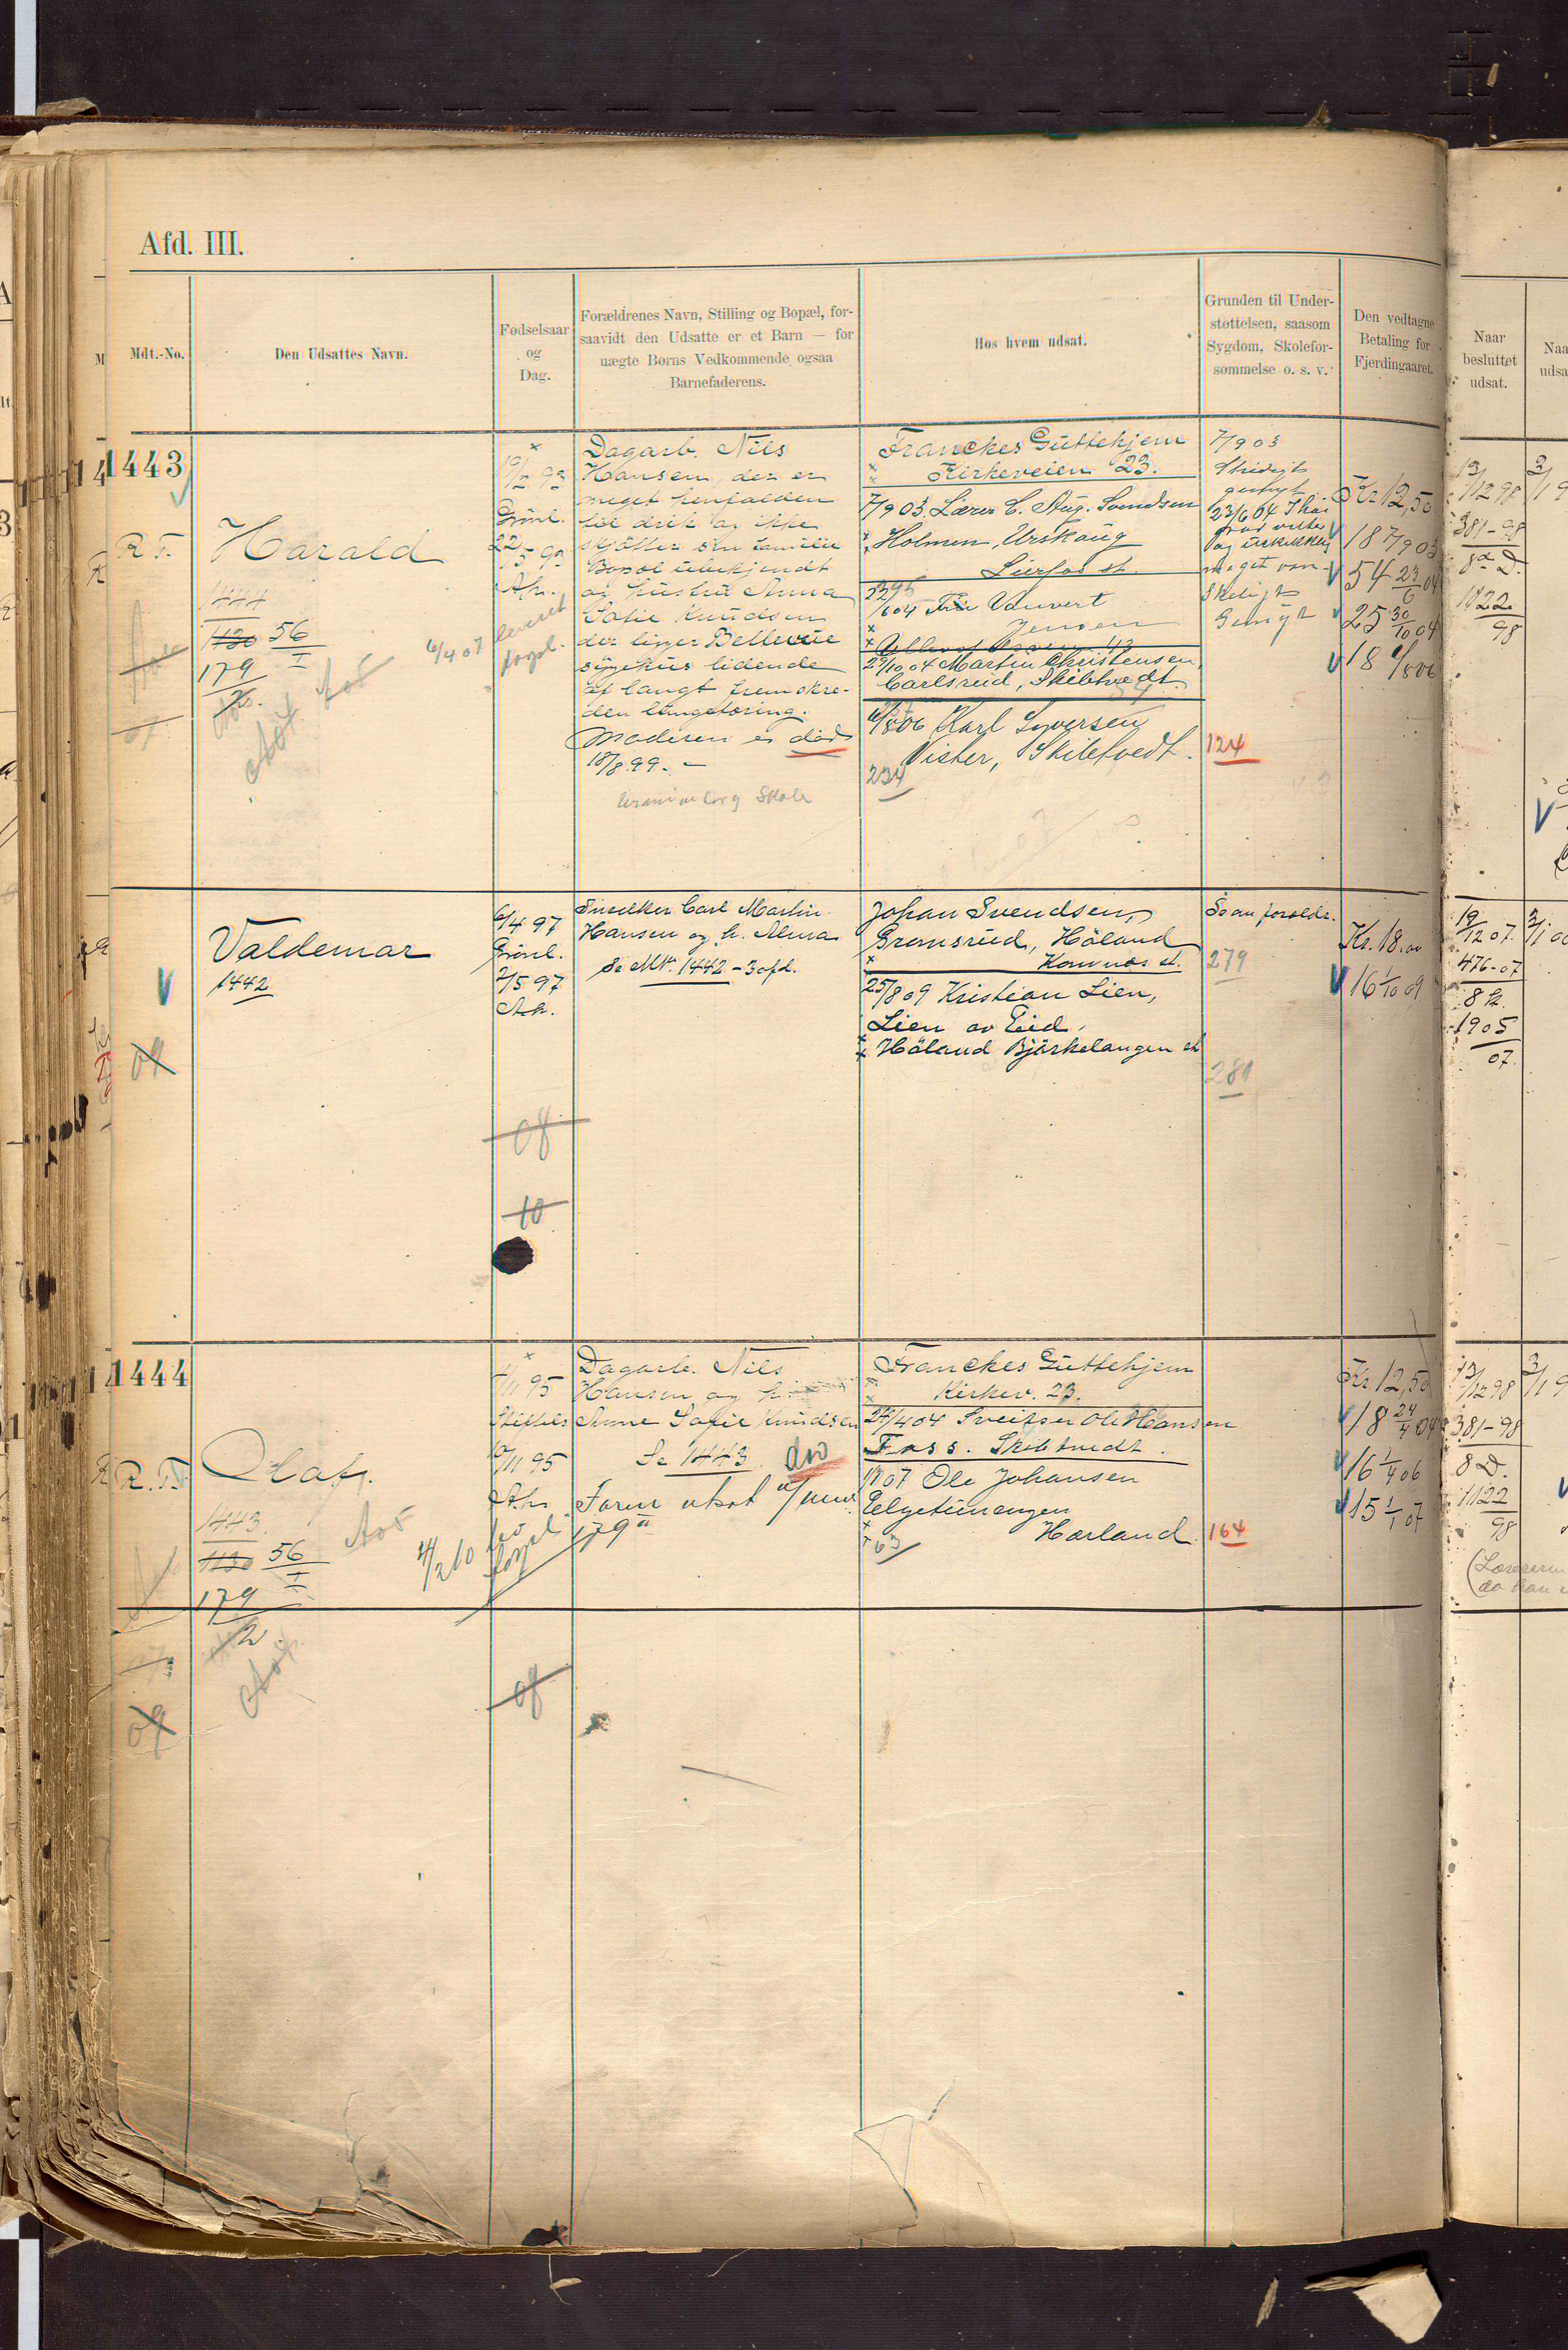 Afd. III.
Mdt.-No.
Den Udsattes Navn.
Fødselsaar
og
Dag.
Forældrenes Navn, Stilling og Bopæl, for-
saavidt den Udsatte er et Barn — for
uægte Børns Vedkommende ogsaa
Barnefaderens.
Hos hvem udsat.
Grunden til Under-
støttelsen, saasom
Sygdom, Skolefor-
sømmelse o. s. v.
Den vedtagne
Betaling for
Fjerdingaaret.
Naar
besluttet
udsat.
1443
R. T.
Harald
444
1130 56
I
179
2
6/4 07
19/2 93
Grønl.
22/5 93
Ak.
Dagarb. Nils
Hansen, der er
meget henfalden
til drik og ikke
skjøtter sin familie
Bopæl ubekjendt
og hustru Anna
Sofie Knudsen
der ligger Bellevue
sygehus lidende
af langt fremskre-
den lungetæring.
Moderen er død
18/8 99. -
Uranienborg Skole
Franckes Guttehjem
Kirkeveien 23.
7/9 03 Lærer C. Aug. Svendsen
Holmen, Urskaug
Lierfos st.
Vauvert
Jensen
27/10 04 Martin Christensen
Carlsrud, Skibtvedt
6/8 06 Karl Syversen
Vister, Skibtvedt.
234
7/9 03
23/6 04
meget van-
skeligt
124
Kr. 12,50
18 7/9 03
54 23/6 04
25 30/10 04
18 6/8 06
13/12 98
381-98
8 D.
1122
98
Valdemar
1442
09
6/4 97
Grønl.
2/5 97
Ak.
08
10
Snedker Carl Martin
Hansen og h. Alma
Se Mt. 1442 - 3 afd.
Johan Svendsen,
Gromsrud, Høland
Komnes st.
25/8 09 Kristian Lien,
Lien av Eid,
Høland Bjørkelangen st
Se an. foreldr.
279
281
Kr. 18.00
16 1/10 09
19/12 07.
476-07
8 k.
1905
07.
1444
R. T.
Olaf.
1443.
1130 56
I
179
2
09
4/2 10
4/11 95
10/11 95
Ak.
08
Dagarb. Nils
Hansen og h.
Anne Sofie Knudsen
Se 1443. død
179
Franckes Guttehjem
Kirkev. 23.
24/4 04 Sveitser Ole Hansen
Foss. Skibtvedt.
1/1 07 Ole Johansen
Elgetunengen
63
Hærland.
164
Kr. 12,50
18 24/4 04
16 1/4 06
15 1/1 07
13/12 98
381-98
8 D.
1122
98